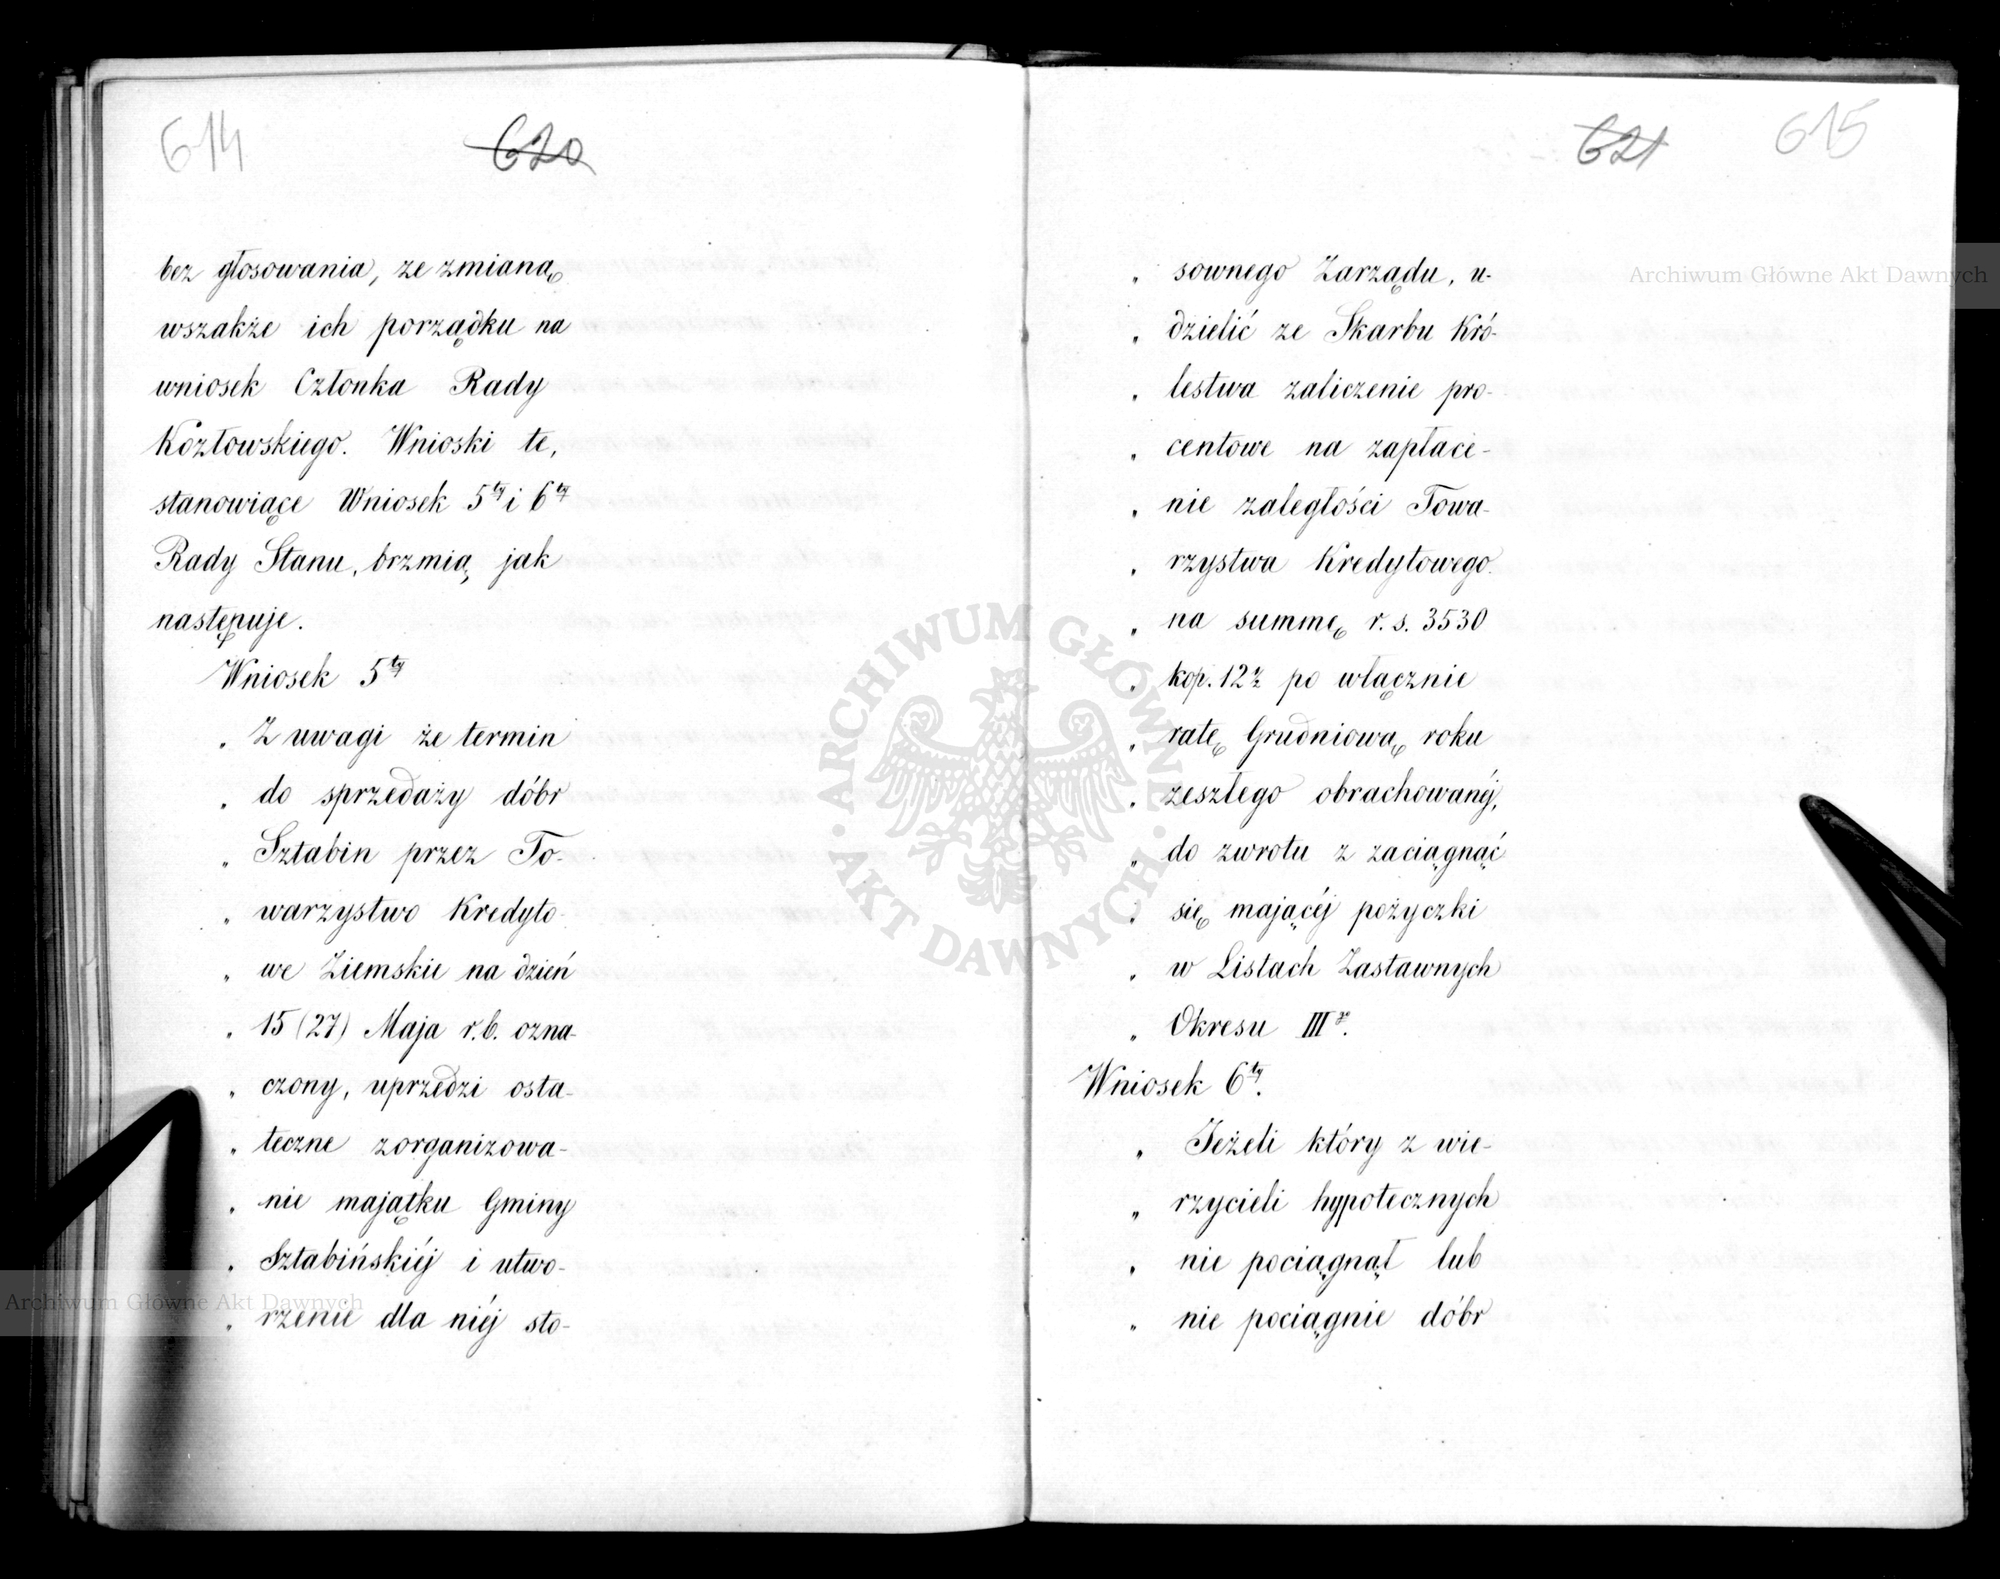 614
620
bez głosowania, ze zmianą
wszakże ich porządku na
wniosek Członka Rady
Kozłowskiego. Wnioski te,
stanowiące Wniosek 5ty i 6ty
Rady Stanu, brzmią jak
następuje.
Wniosek 5ty
„ Z uwagi że termin
„ do sprzedaży dóbr
„ Sztabin przez To-
„ warzystwo Kredyto-
„ we Ziemskie na dzień
„ 15 (27) Maja r. b. ozna-
„ czony, uprzedzi osta-
„ teczne zorganizowa-
„ nie majątku Gminy
„ Sztabińskiéj i utwo-
„ rzenie dla niéj sto-
621
615
„ sownego Zarządu, u-
„ dzielić ze Skarbu Kró-
„ lestwa zaliczenie pro-
„ centowe na zapłace-
„ nie zaległości Towa-
„ rzystwa Kredytowego
„ na summę r. s. 3530
„ kop. 12½ po włącznie
„ ratę Grudniową roku
„ zeszłego obrachowanéj,
„ do zwrotu z zaciągnąć
„ się mającéj pożyczki
„ w Listach Zastawnych
„ Okresu IIIo.
Wniosek 6ty.
„ Jeżeli który z wie-
„ rzycieli hypotecznych
„ nie pociągnął lub
„ nie pociągnie dóbr
Archiwum Główne Akt Dawnych
Archiwum Główne Akt Dawnych
ARCHIWUM GŁÓWNE
AKT DAWNYCH